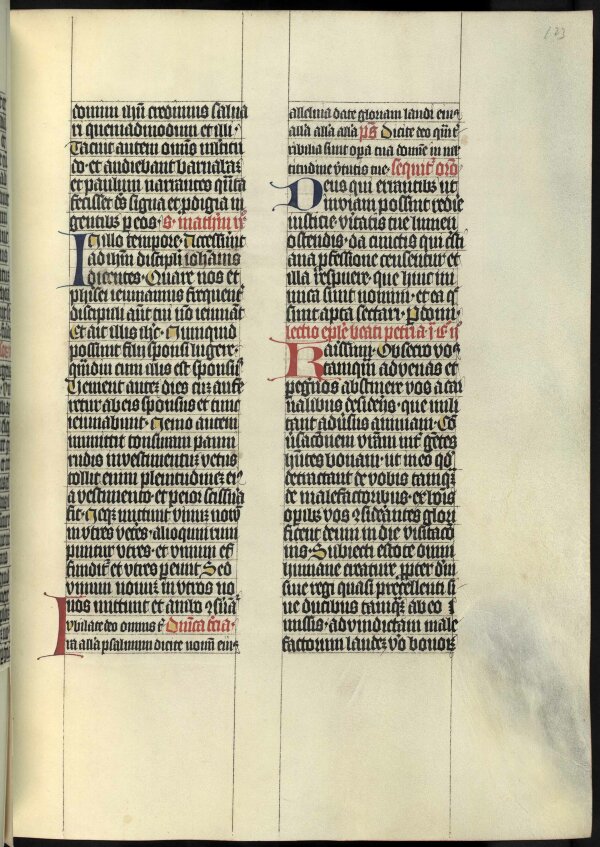 133
domini ihū credimus salua
ri quemadmodum et illi.
Tacuit autem omnis multitu
do. et audiebant barnabā
et paulum narrantes quāta
fecisset dš signa et prodigia in
gentibus per eos. S. mathm̄
In illo tempore. Accesserūt
ad ihm̄ discipli iohānis
dicentes. Quare nos et
pharisei ieiunamus frequent̄
discipuli aūt tui nō ieiunāt
Et ait illis ihc̄. Numquid
possunt filii sponsi lugere.
quādiu cum illis est sponsus
Uenient autez dies cūz aufe
retur ab eis sponsus et tunc
ieiunabunt. Nemo autem
inmittit comissuram panni
rudis in vestimentuz vetus
tollit enim plenitudinez ei9
a vestimento. et peior scissura
fit. Neqz mittunt vinuz nouū
in vtres veteres. alioquin rum
puntur vtres. et vinum eff
funditur et vtres pereunt. Sed
vinum nouuz in vtres no
uos mittunt et ambo ɔseruā.
Iubilate deo omnis t̄ Dn̄ica tercia.
ra alla psalmum dicite nomini ei9
alleluia date gloriam laudi ei9
alla alla alla alla ps̄ Dicite deo qm̄ t
ribilia sunt opera tua domine in ml
titudine v̄tutis tue. Sequit̄ orō
Deus qui errantibus ut
in viam possint redire
iusticie. v̄itatis tue lumen
ostendis. da cunctis qui xp̄i
ana professione censentur et
illa respuere. que huic ini
mica sunt nomini. et ea q̄
sunt apta sectari. P dom̄
lectio eplē beati petri a
Karissimi. Obsecro vos
tamquam aduenas et
peregrinos abstinere vos a car
nalibus desiderijs. que mili
tant aduersus animam. Cō
uersacionem vr̄am int̄ gētes
hn̄tes bonam. ut in eo qd̄
detractant de vobis tamqz
de malefactoribus. ex bonis
operibus vos ɔsiderantes glori
ficent deum in die visitacio
nis. Subiecti estote omni
humane creature. propter deū
siue regi quasi precellenti si
ue ducibus tamqz ab eo
missis. ad vindictam male
factorum laudez vō bonorz